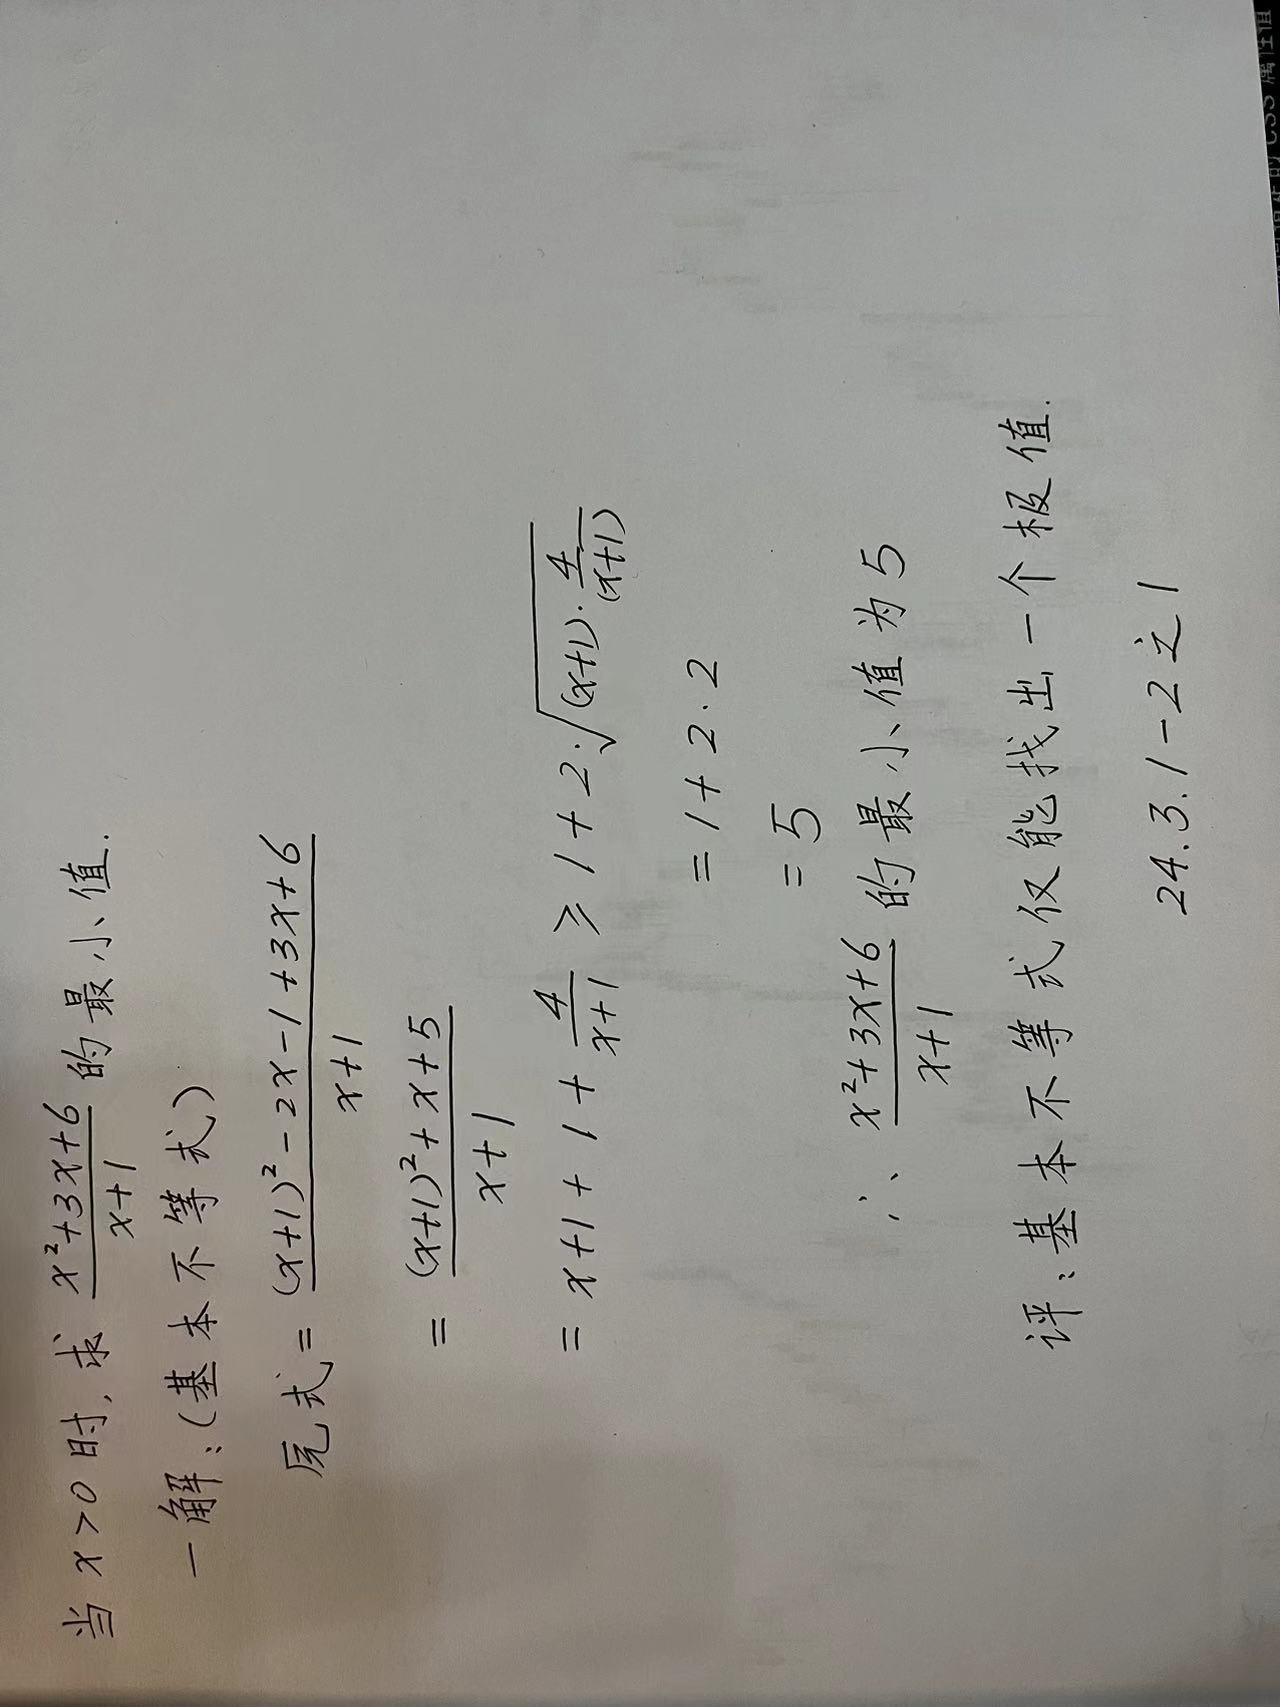 当 x>0 时, 求 (x²+3x+6)/(x+1) 的最小值.
一解:(基本不等式)
原式 = ((x+1)²-2x-1+3x+6)/(x+1)
= ((x+1)²+x+5)/(x+1)
= x+1+1+4/(x+1) ≥ 1+2·√((x+1)·4/(x+1))
= 1+2·2
= 5
∴ (x²+3x+6)/(x+1) 的最小值为 5
评:基本不等式仅能找出一个极值.
24.3.1-2之1